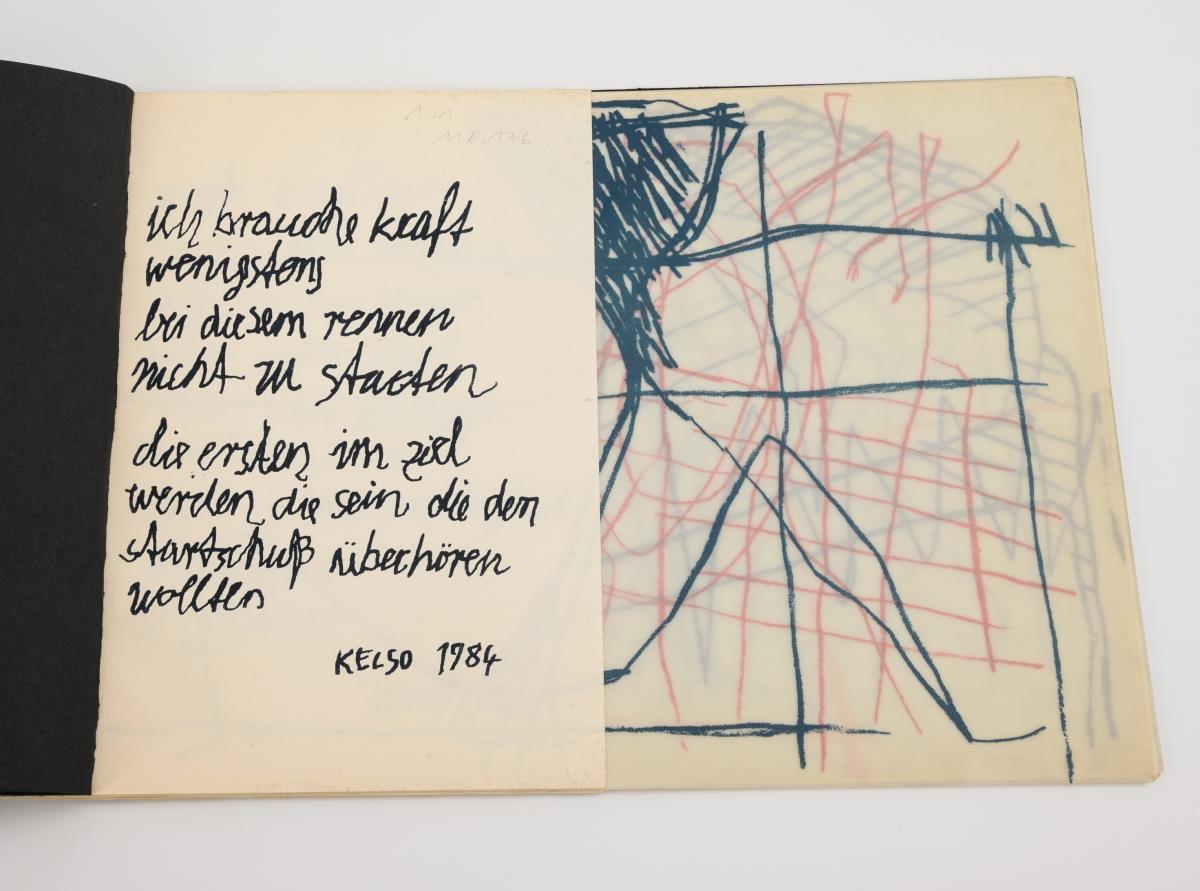 ich brauche kraft
wenigstens
bei diesem rennen
nicht zu starten
die ersten im ziel
werden die sein die den
startschuß überhören
wollten
KELSO 1984